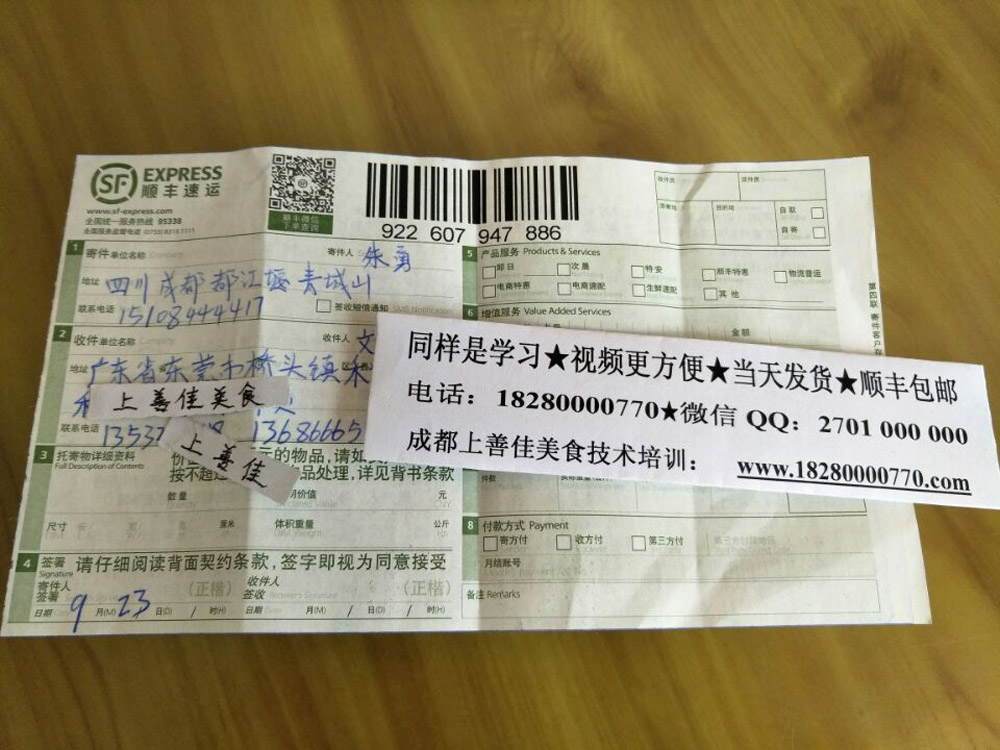 SF EXPRESS
顺丰速运
www.sf-express.com
全国统一服务热线 95338
全国服务监督电话 (0755) 8315 1111
顺丰微信
下单查询
922 607 947 886
收件员
派件员
寄寄地
目的地
自取
自寄
1 寄件单位名称
寄件人 朱勇
地址 四川成都都江堰青城山
联系电话 15108944417
签收短信通知
2 收件单位名称
收件人 文
地址 广东省东莞市桥头镇禾
上善佳美食
联系电话 13537 13686665
上善佳
3 托寄物详细资料
Full Description of Contents
元的物品,请如
按不超 品处理,详见背书条款
数量
价值
元
尺寸
厘米
体积重量
公斤
4 签署 请仔细阅读背面契约条款,签字即视为同意接受
Signature
寄件人
签署
(正楷)
收件人
签收
(正楷)
日期 9 月(M) 23 日(D) / 时(H)
日期 月(M) / 日(D) / 时(H)
5 产品服务 Products & Services
即日
次晨
特安
顺丰特惠
物流普运
电商特惠
电商速配
生鲜速配
其他
6 增值服务 Value Added Services
金额
同样是学习★视频更方便★当天发货★顺丰包邮
电话:18280000770★微信 QQ:2701 000 000
成都上善佳美食技术培训: www.18280000770.com
件数
8 付款方式 Payment
寄方付
收方付
第三方付
第三方付款地区
月结账号
备注 Remarks
第四联 寄件客户存